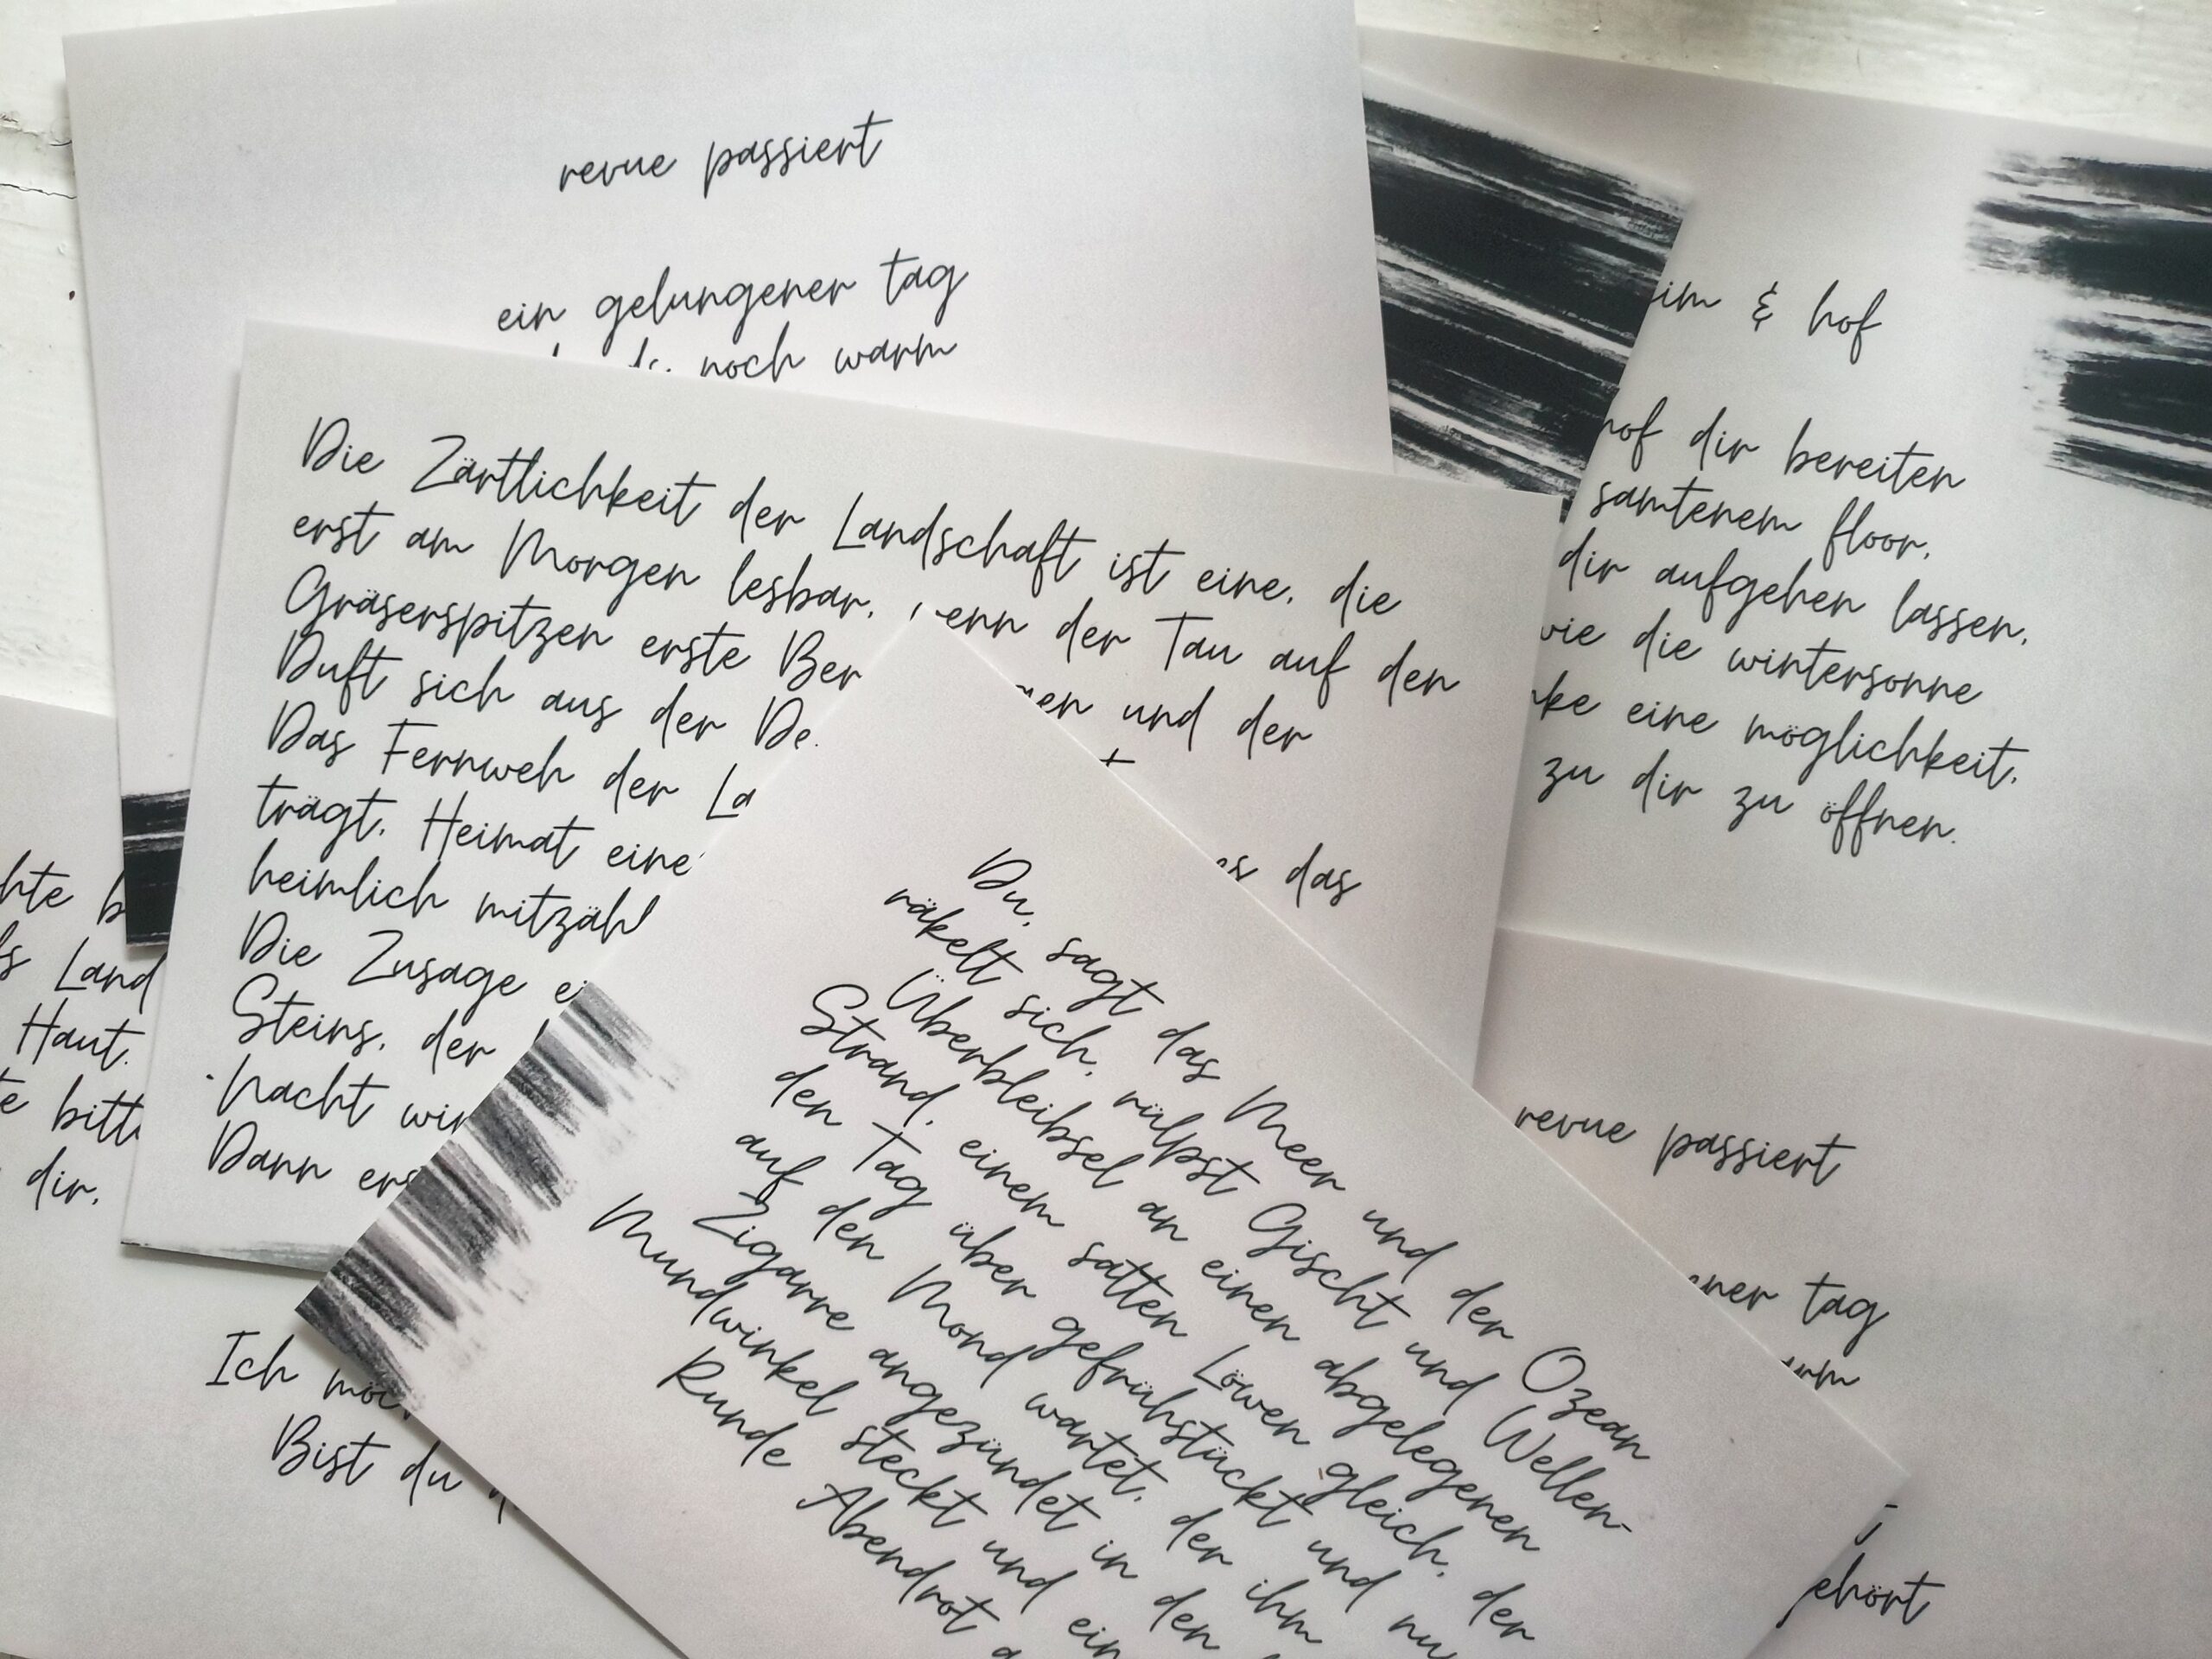 revue passiert
ein gelungener tag
noch warm
& hof
dir bereiten
samtenem floor,
dir aufgehen lassen,
wie die wintersonne
eine möglichkeit,
zu dir zu öffnen.
Die Zärtlichkeit der Landschaft ist eine, die
erst am Morgen lesbar, wenn der Tau auf den
Gräserspitzen erste und der
Duft sich aus der
Das Fernweh der
trägt, Heimat eine das
heimlich
Die Zusage
Steins, der
Nacht
Dann
Land
Haut.
dir,
Ich
Bist du
Du, sagt das Meer und der Ozean
räkelt sich, rülpst Gischt und Wellen-
Überbleibsel an einen abgelegenen
Strand, einem satten Löwen gleich, der
den Tag über gefrühstückt und nu
auf den Mond wartet, der ihm
Zigarre angezündet in den
Mundwinkel steckt und ein
Runde Abendrot
revue passiert
tag